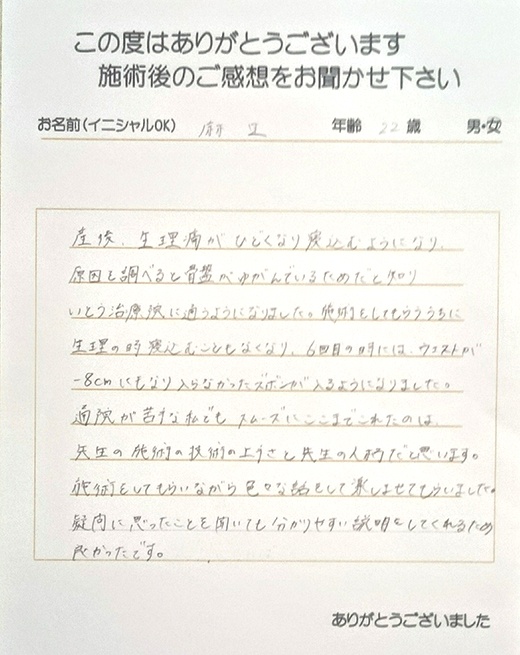 この度はありがとうございます
施術後のご感想をお聞かせ下さい
お名前(イニシャルOK) 年齢 22 歳 男・女
産後、生理痛がひどくなり寝込むようになり、
原因を調べると骨盤がゆがんでいるためだと知り
いとう治療院に通うようになりました。施術をしてもらううちに
生理の時寝込むこともなくなり、6回目の時には、ウエストが
-8cmにもなり入らなかったズボンが入るようになりました。
通院が苦手な私でもスムーズにここまでこれたのは、
先生の施術の技術の上手さと先生の人柄だと思います。
施術をしてもらいながら色々な話をして楽しませてもらいました。
疑問に思ったことを聞いても分かりやすい説明をしてくれるため
良かったです。
ありがとうございました